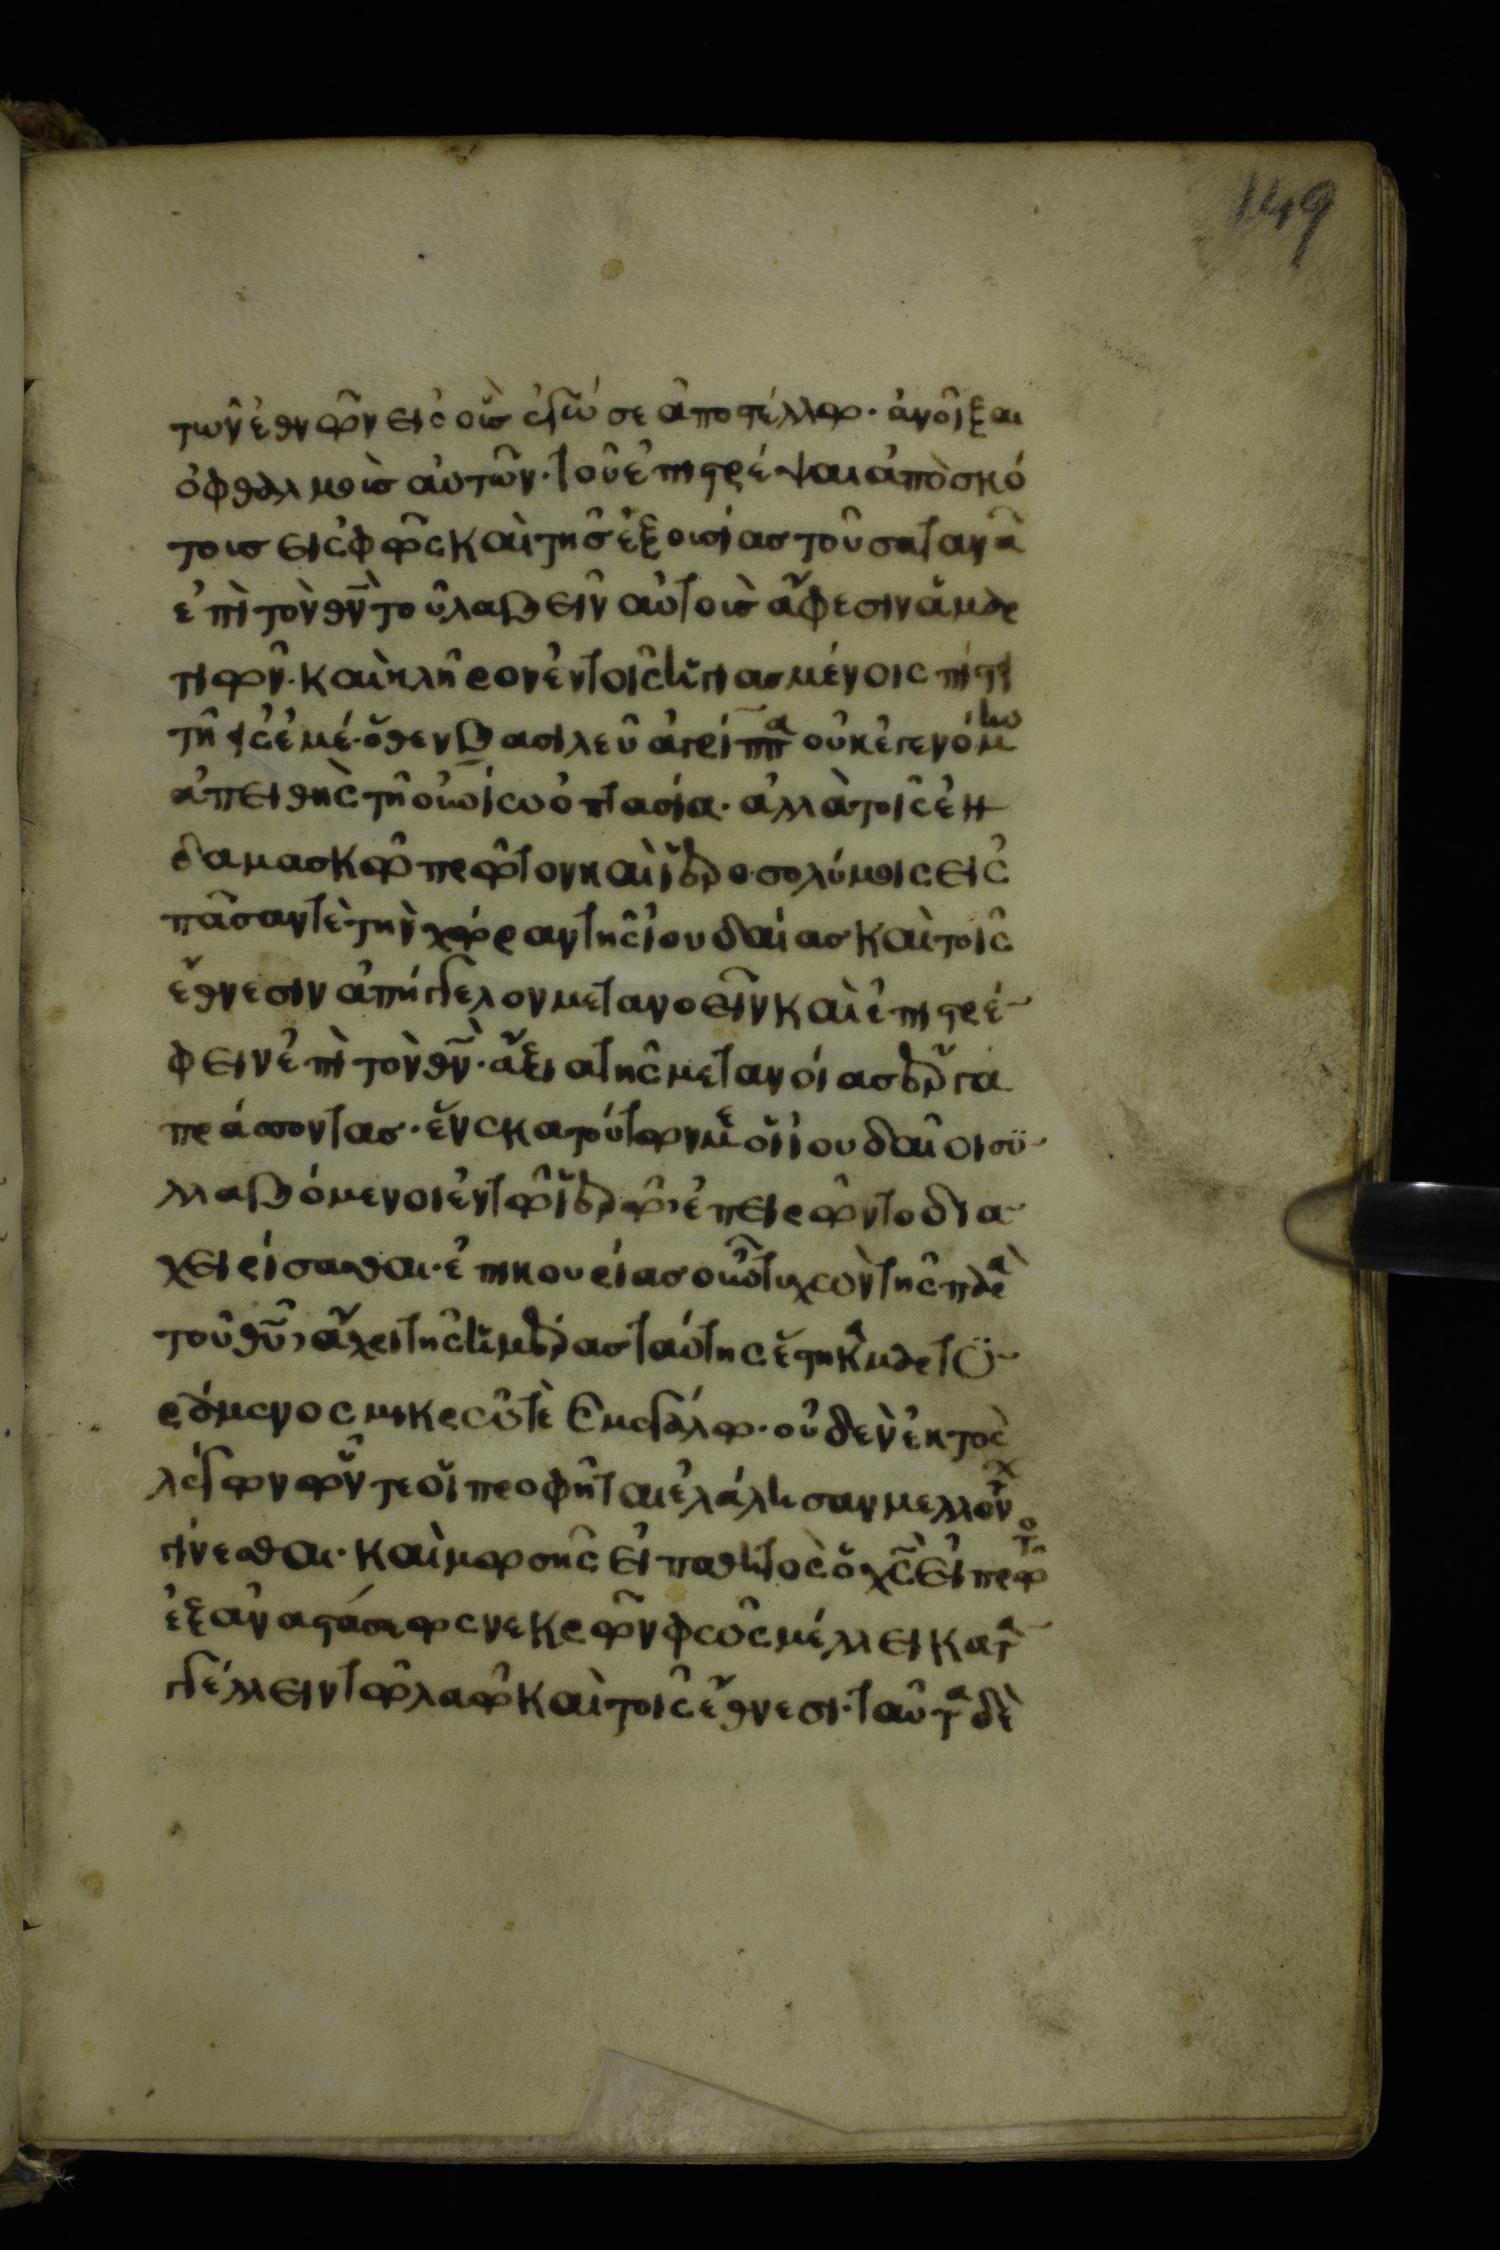 149
τῶν ἐθνῶν εἰς οὓς ἐγώ σε ἀποστέλλω· ἀνοῖξαι
ὀφθαλμοὺς αὐτῶν· τοῦ ἐπιστρέψαι ἀπὸ σκό
τους εἰς φῶς καὶ τῆς ἐξουσίας τοῦ σατανᾶ
ἐπὶ τὸν θν̅ τοῦ λαβεῖν αὐτοὺς ἄφεσιν ἁμαρ
τιῶν· καὶ κλῆρον ἐν τοῖς ἡγιασμένοις πίστει
τῇ εἰς ἐμέ· ὅθεν βασιλεῦ ἀγρίππα οὐκ ἐγενόμην
ἀπειθὴς τῇ οὐρανίω ὀπτασία· ἀλλὰ τοῖς ἐν
δαμασκῶ πρῶτον καὶ ἱεροσολύμοις εἰς
πᾶσαν τὲ τὴν χώραν τῆς ἰουδαίας καὶ τοῖς
ἔθνεσιν ἀπήγγελον μετανοεῖν καὶ ἐπιστρέ
φειν ἐπὶ τὸν θν̅· ἄξια τῆς μετανοίας ἔργα
πράσσοντας· ἕνεκα τούτων με οἱ ἰουδαῖοι συ
λλαβόμενοι ἐν τῶ ἱερῶ, ἐπειρῶντο δια
χειρίσασθαι· ἐπικουρίας οὖν τυχὼν τῆς παρὰ
τοῦ θυ̅, ἄχρι τῆς ἡμέρας ταύτης ἕστηκα μαρτυ
ρόμενος μικρῶ τὲ καὶ μεγάλω· οὐδὲν ἐκτὸς
λέγων ὧν τε οἱ προφῆται ἐλάλησαν μελλόντων
γίνεσθαι· καὶ μωσῆς εἰ παθητὸς ὁ χς̅ εἰ πρῶτος
ἐξ ἀναστάσεως νεκρῶν φῶς μέλλει καταγ
γέλλειν τῶ λαῶ καὶ τοῖς ἔθνεσι· ταῦτα δὲ